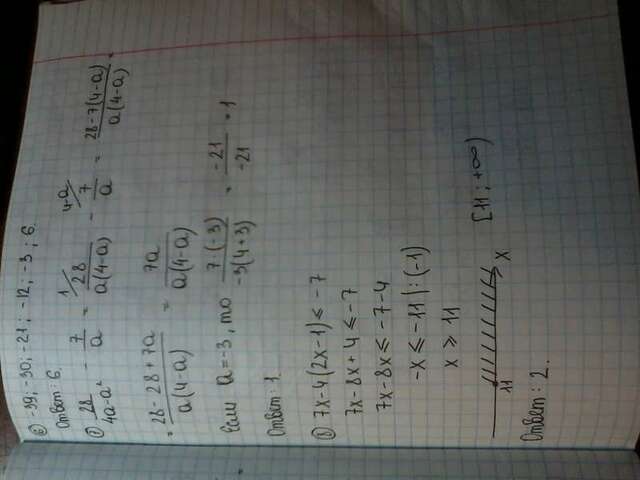 ⑥ -39; -30; -21; -12; -3; 6.
Ответ: 6.
⑦ 28/(4a-a²) - 7/a = 1/ 28/(a(4-a)) - 4-a/ 7/a = (28-7(4-a))/(a(4-a)) =
= (28-28+7a)/(a(4-a)) = 7a/(a(4-a))
Если a=-3, то (7·(-3))/(-3(4+3)) = -21/-21 = 1
Ответ: 1.
⑧ 7x-4(2x-1) ≤ -7
7x-8x+4 ≤ -7
7x-8x ≤ -7-4
-x ≤ -11 | : (-1)
x ≥ 11
[11; +∞)
11 x
Ответ: 2.